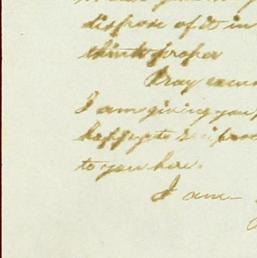 dispose of it in
think proper
Pray excuse
I am giving you
happy to reciproc
to you here.
I am